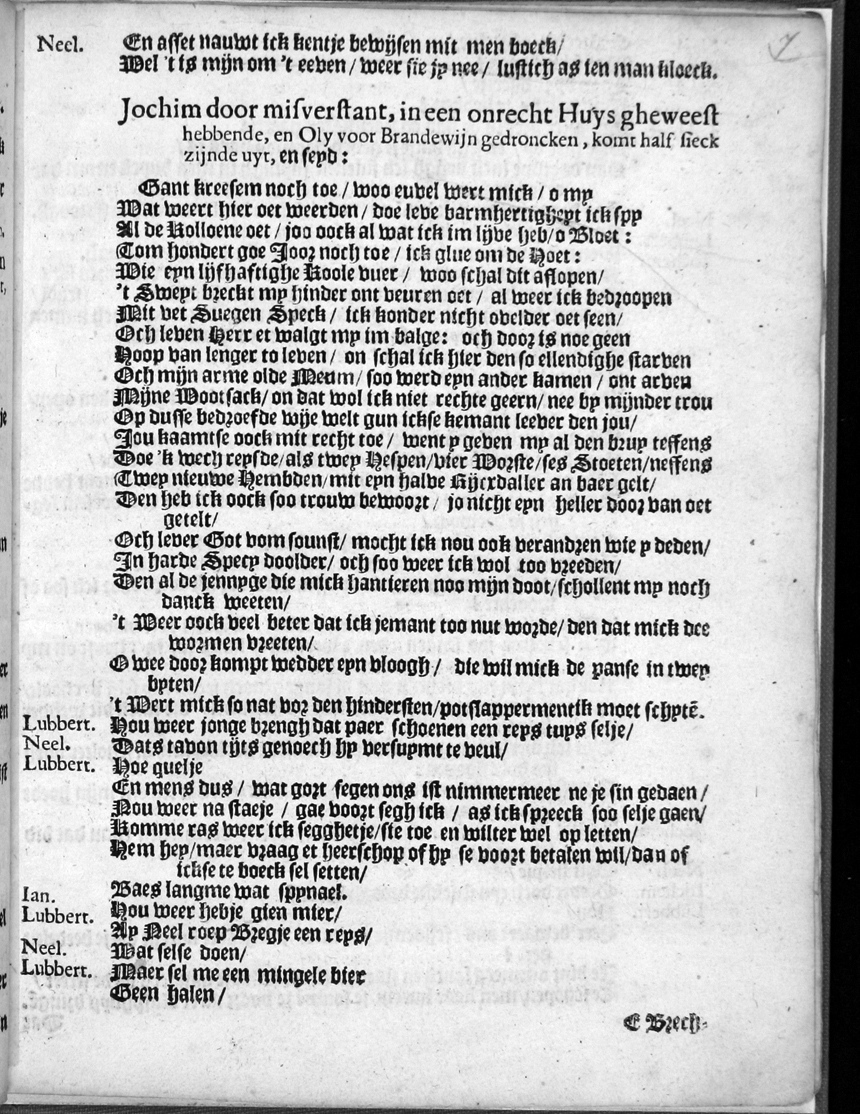 7
Neel. En asset nauwt ick kentje bewijsen mit men boeck/
Wel 't is mijn om 't eeven/ weer sie jy nee/ lustich as ien man kloeck.
Jochim door misverstant, in een onrecht Huys gheweest
hebbende, en Oly voor Brandewijn gedroncken, komt half sieck
zijnde uyt, en seyd:
Gant kreesem noch toe/ woo euvel wert mick/ o my
Wat weert hier oet weerden/ doe leve barmhertigheyt ick spy
Al de Kolloene oet/ joo oock al wat ick im lijve heb/ o Bloet:
Tom hondert goe Joor noch toe/ ick glue om de Hoet:
Wie eyn lijfhaftighe Koole vuer/ woo schal dit aflopen/
't Sweyt breckt my hinder ont veuren oet/ al weer ick bedroopen
Mit vet Suegen Speck/ ick konder nicht ovelder oet seen/
Och leven Herr et walgt my im balge: och door is noe geen
Hoop van lenger to leven/ on schal ick hier den so ellendighe starven
Och mijn arme olde Meum/ soo werd eyn ander kamen/ ont arven
Mijne Wootsack/ on dat wol ick niet rechte geern/ nee by mijnder trou
Op dusse bedroefde wije welt gun ickse kemant leever den jou/
Jou kaamtse oock mit recht toe/ went y geven my al den bruy teffens
Doe 'k wech reysde/ als twey Hespen/ vier Worste/ ses Stoeten/ neffens
Twey nieuwe Hembden/ mit eyn halve Rijcxdaller an baer gelt/
Den heb ick oock soo trouw bewoort/ jo nicht eyn heller door van oet
getelt/
Och lever Got vom sounst/ mocht ick nou ook verandren wie y deden/
In harde Specy doolder/ och soo weer ick wol too vreeden/
Den al de jennyge die mick hantieren noo mijn doot/ schollent my noch
danck weeten/
't Weer oock veel beter dat ick jemant too nut worde/ den dat mick dee
wormen vreeten/
O wee door kompt wedder eyn vloogh/ die wil mick de panse in twey
byten/
't Wert mick so nat vor den hindersten/ potslappermentik moet schytē.
Lubbert. Hou weer jonge brengh dat paer schoenen een reys tuys selje/
Neel. Dats tavon tijts genoech hy versuymt te veul/
Lubbert. Hoe quelje
En mens dus/ wat gort segen ons ist nimmermeer ne je sin gedaen/
Nou weer na staeje/ gae voort segh ick/ as ick spreeck soo selje gaen/
Komme ras weer ick segghetje/ sie toe en wilter wel op letten/
Hem hey/ maer vraag et heerschop of hy se voort betalen wil/ dan of
ickse te boeck sel setten/
Ian. Baes langme wat spynael.
Lubbert. Hou weer hebje gien mier/
Ay Neel roep Bregje een reys/
Neel. Wat selse doen/
Lubbert. Maer sel me een mingele bier
Geen halen/
E Brech-